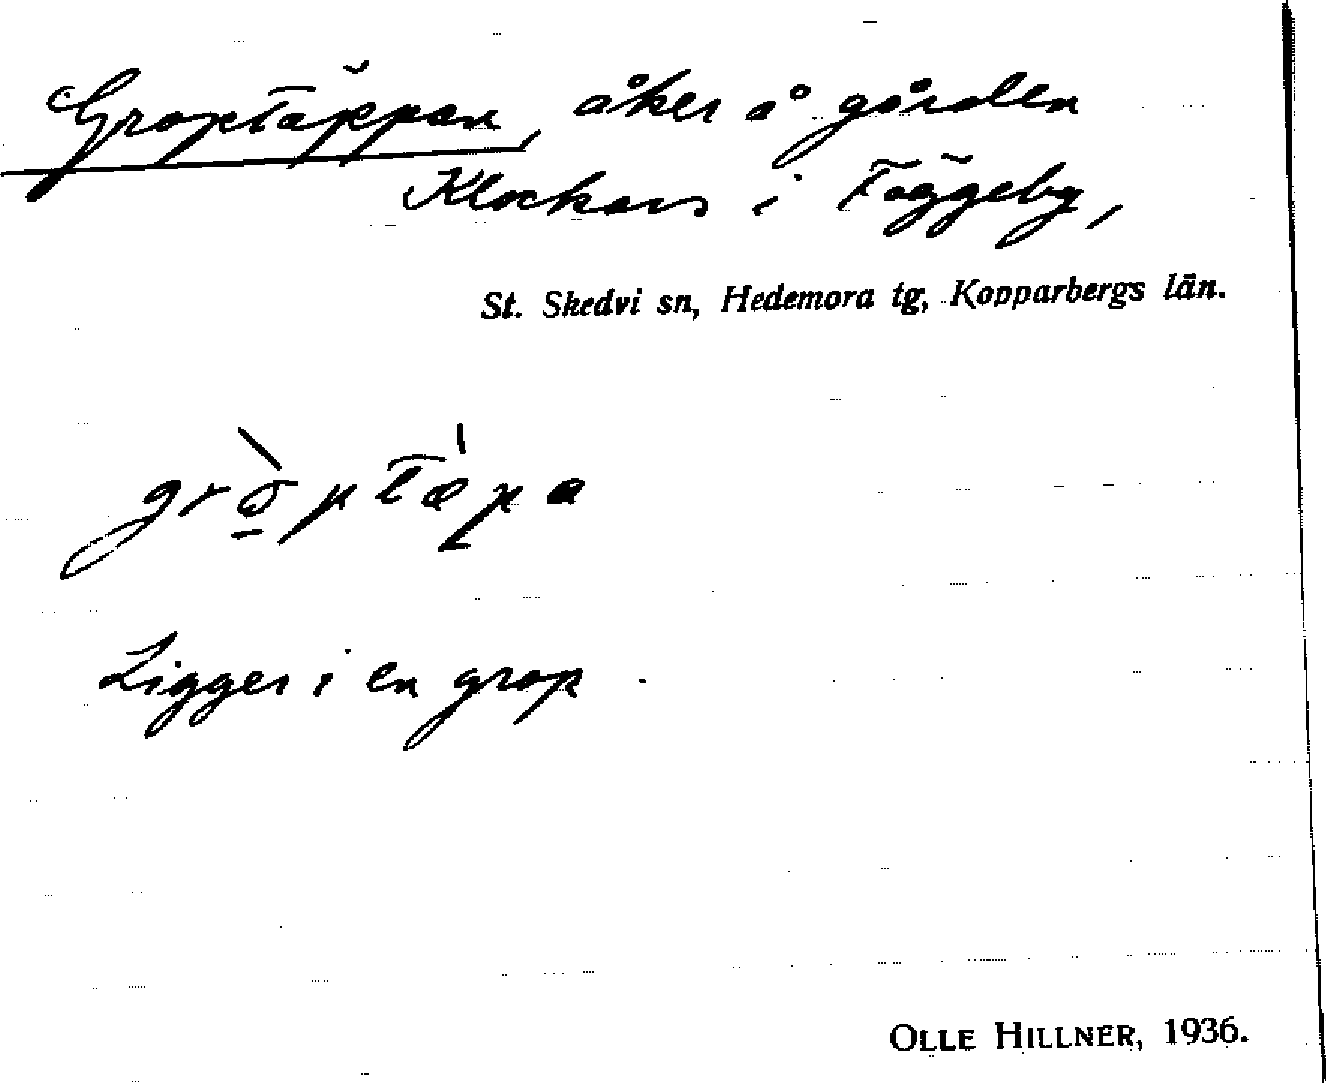 Groptäppan, åker å gården
Klockars i Täggeby,
St. Skedvi sn, Hedemora tg, Kopparbergs län.
Ligger i en grop.
OLLE HILLNER, 1936.